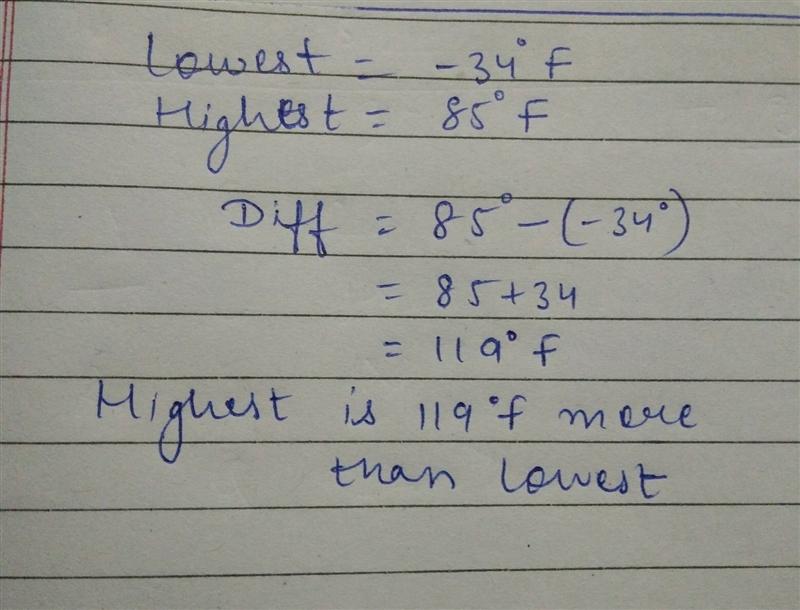 Lowest = -34°F
Highest = 85°F
Diff = 85° - (-34°)
= 85+34
= 119°f
Highest is 119°f more
than lowest